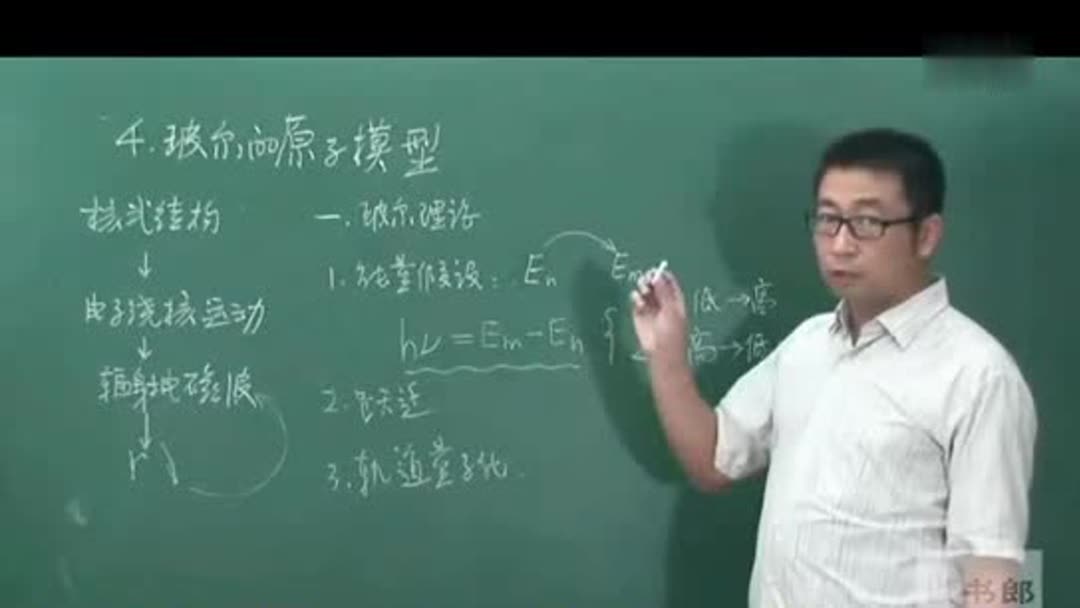 4.玻尔的原子模型
核式结构
↓
电子绕核运动
↓
辐射电磁波
↓
r↓
一.玻尔理论
1.能量假设: En → Em
hν=Em-En { 低→高
高→低
2.跃迁
3.轨道量子化.
书郎